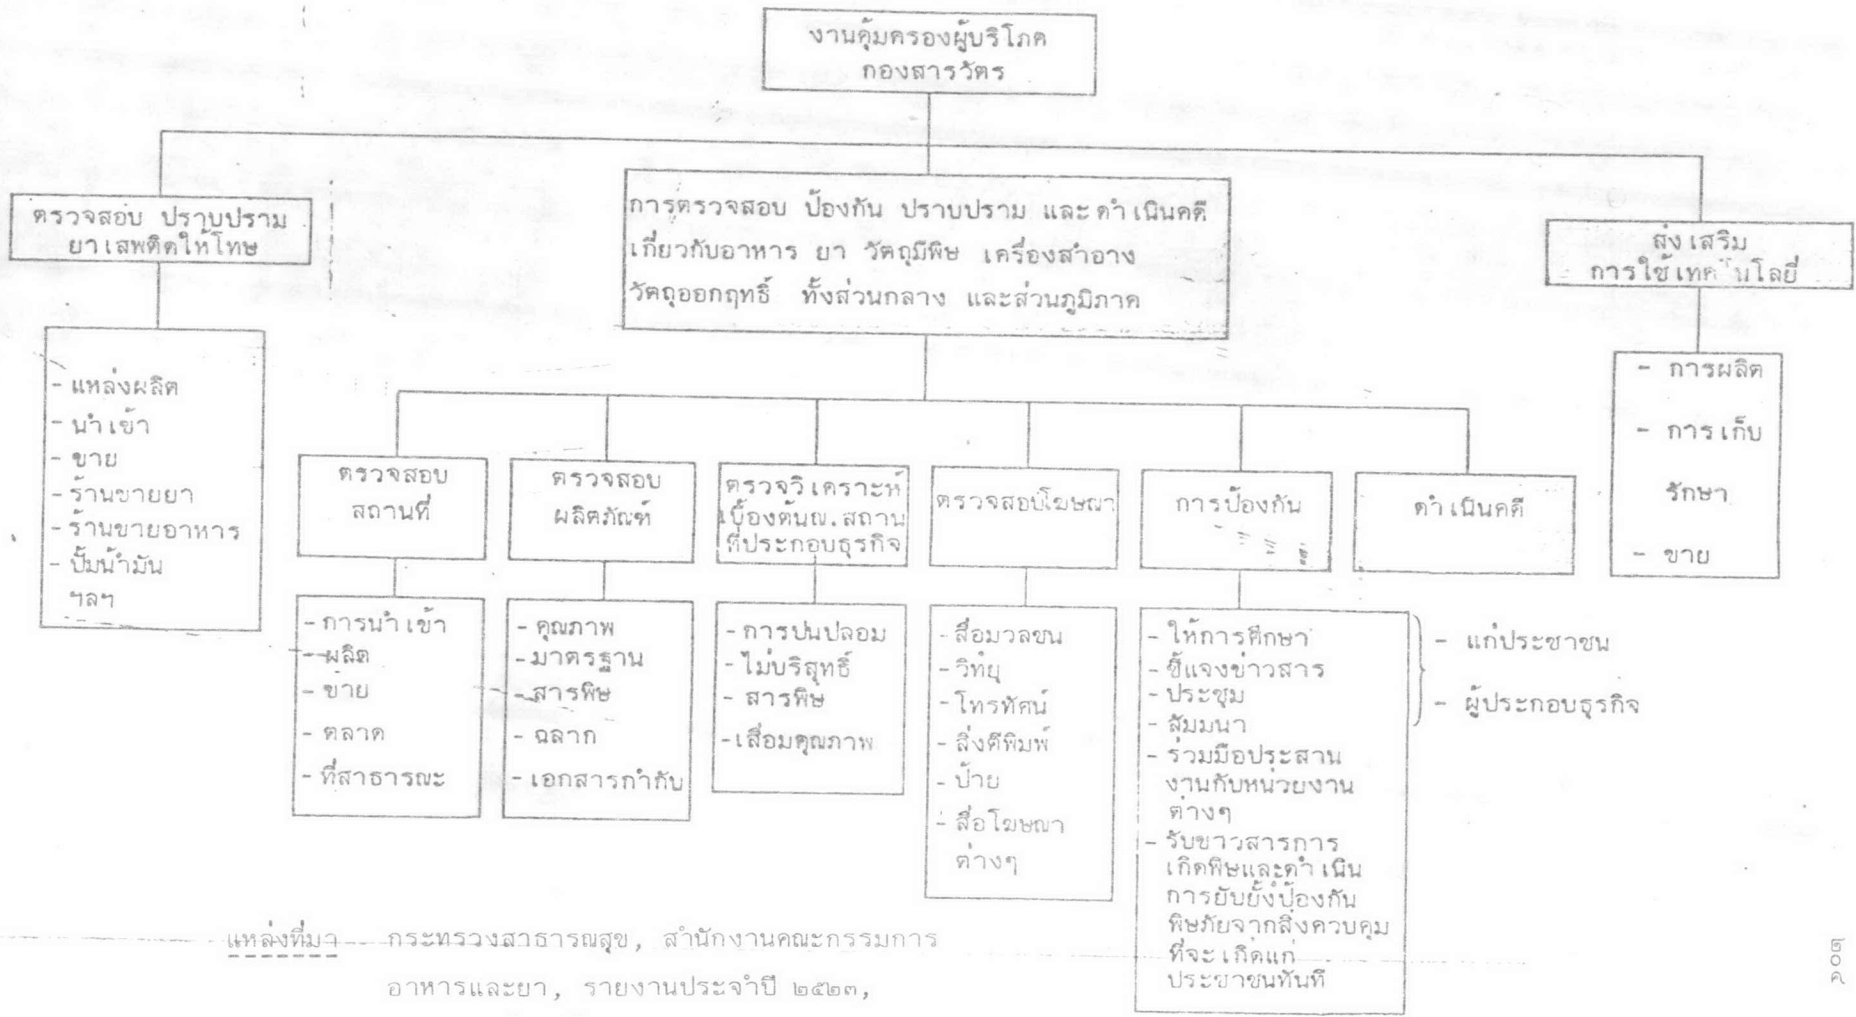 งานคุ้มครองผู้บริโภค
กองสารวัตร
ตรวจสอบ ปราบปราม
ยาเสพติดให้โทษ
- แหล่งผลิต
- นำเข้า
- ขาย
- ร้านขายยา
- ร้านขายอาหาร
- ปั๊มน้ำมัน
ฯลฯ
การตรวจสอบ ป้องกัน ปราบปราม และดำเนินคดี
เกี่ยวกับอาหาร ยา วัตถุมีพิษ เครื่องสำอาง
วัตถุออกฤทธิ์ ทั้งส่วนกลาง และส่วนภูมิภาค
ส่งเสริม
การใช้เทคโนโลยี่
- การผลิต
- การเก็บ
รักษา
- ขาย
ตรวจสอบ
สถานที่
- การนำเข้า
- ผลิต
- ขาย
- ตลาด
- ที่สาธารณะ
ตรวจสอบ
ผลิตภัณฑ์
- คุณภาพ
- มาตรฐาน
- สารพิษ
- ฉลาก
- เอกสารกำกับ
ตรวจวิเคราะห์
เบื้องต้นณ.สถาน
ที่ประกอบธุรกิจ
- การปนปลอม
- ไม่บริสุทธิ์
- สารพิษ
- เสื่อมคุณภาพ
ตรวจสอบโฆษณา
- สื่อมวลชน
- วิทยุ
- โทรทัศน์
- สิ่งตีพิมพ์
- ป้าย
- สื่อโฆษณา
ต่างๆ
การป้องกัน
- ให้การศึกษา
- ชี้แจงข่าวสาร
- ประชุม
- สัมมนา
- ร่วมมือประสาน
งานกับหน่วยงาน
ต่างๆ
- รับข่าวสารการ
เกิดพิษและดำเนิน
การยับยั้งป้องกัน
พิษภัยจากสิ่งควบคุม
ที่จะเกิดแก่
ประชาชนทันที
- แก่ประชาชน
- ผู้ประกอบธุรกิจ
ดำเนินคดี
แหล่งที่มา กระทรวงสาธารณสุข, สำนักงานคณะกรรมการ
อาหารและยา, รายงานประจำปี ๒๕๒๓,
๒๐๒